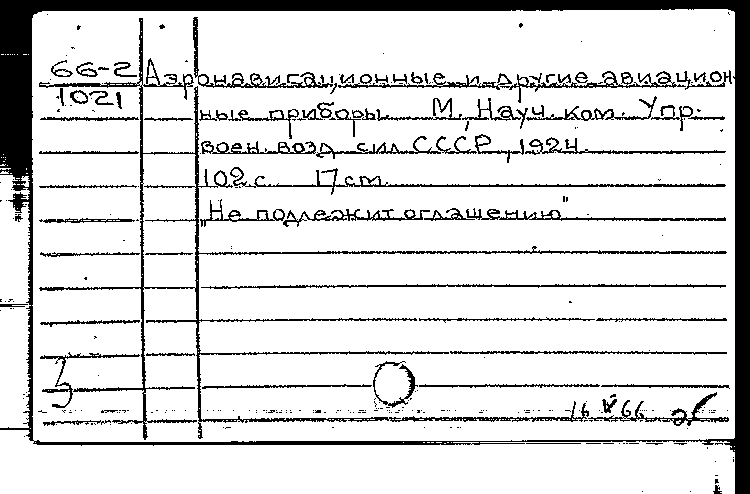 66-2 Аэронавигационные и другие авиацион-
1021 ные приборы. М., Науч. ком. Упр.
воен. возд. сил СССР, 1924.
102 с. 17 см.
„Не подлежит оглашению"
16 V 66